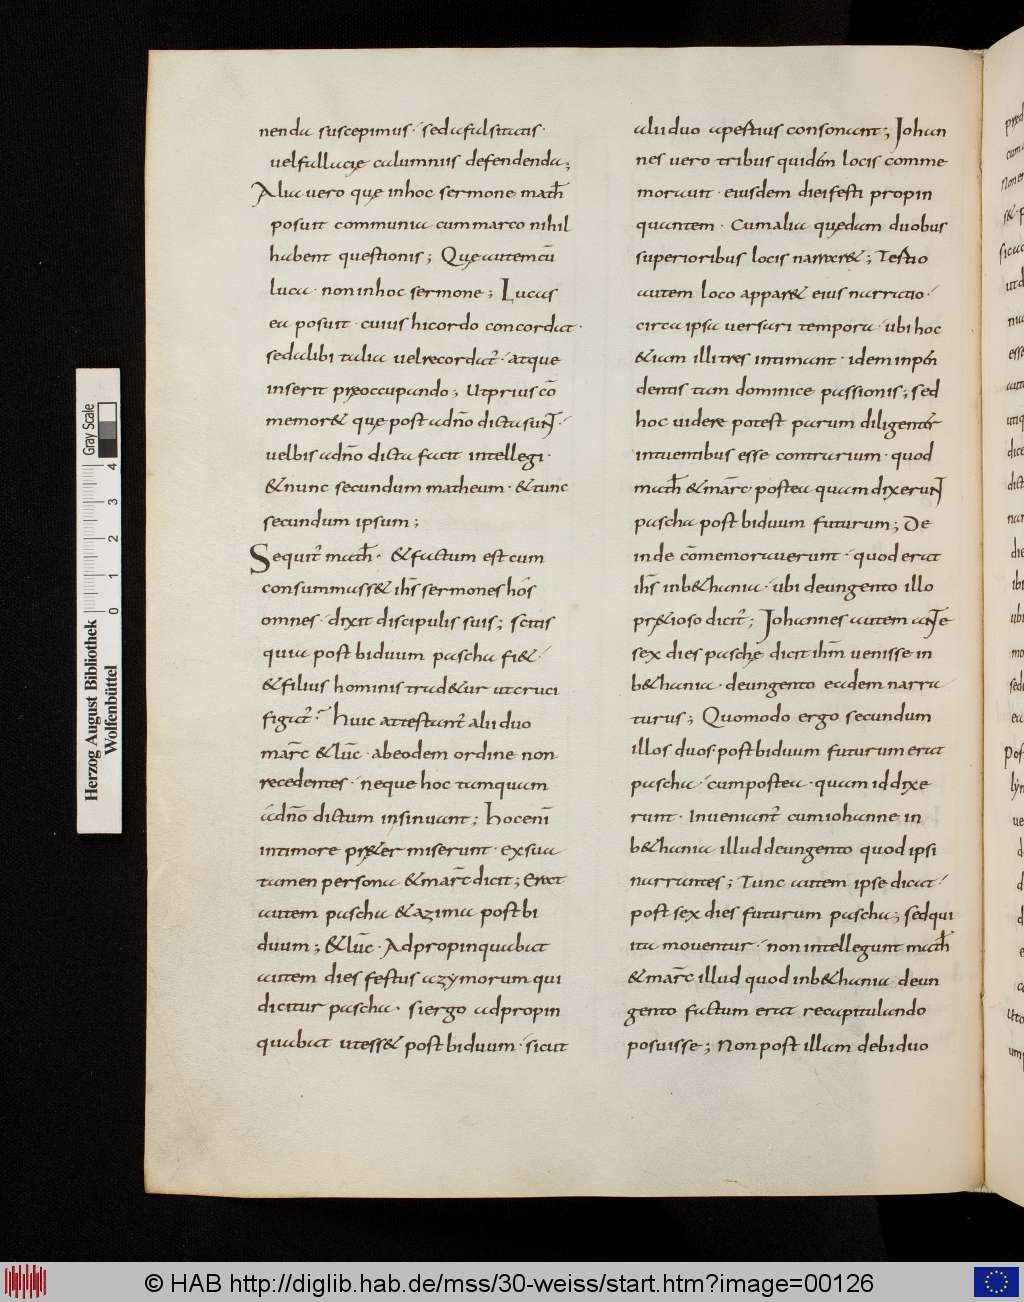 nenda suscepimus· sed a falsitatis·
uel fallacię calumniis defendenda;
Alia uero quę in hoc sermone math̄
posuit communia cum marco nihil
habent quęstionis; Quę autem cū
luca· non in hoc sermone; Lucas
ea posuit· cuius hic ordo concordat·
sed alibi talia uel recordat̄· atque
inserit pręoccupando; Ut prius cō
memor& quę post a dn̄o dicta sunt·
uel bis a dn̄o dicta facit intellegi·
& nunc secundum matheum· & tunc
secundum ipsum;
Sequit̄ math̄· & factum est cum
consummass& ih̄s sermones hōs
omnes· dixit discipulis suis; scitis
quia post biduum pascha fi&·
& filius hominis trad&ur ut cruci
figat̄· Huic attestant̄ alii duo
marc̄ & luc̄· ab eodem ordine non
recedentes· neque hoc tamquam
a dn̄o dictum insinuant; Hoc enī
in timore pręt& er miserunt· ex sua
tamen persona & marc̄ dicit; Erat
autem pascha & azima post bi
duum; & luc̄· Adpropinquabat
autem dies festus azymorum qui
dicitur pascha· si ergo adpropin
quabat ut ess& post biduum· sicut
alii duo apestius consonant; Johan
nes uero tribus quidēm locis comme
morauit· eiusdem diei festi propin
quantem· Cum alia quędam duobus
superioribus locis narrar&; Tertio
autem loco appar& eius narratio·
circa ipsa uersari tempora· ubi hoc
&iam illi tres intimant· idem inpen
dentis iam dominice passionis; sed
hoc uidere potest parum diligenter
intuentibus esse contrarium· quod
math̄ & marc̄ postea quam dixerunt
pascha post biduum futurum; De
inde cōmemorauerunt· quod erat
ih̄s in b&hania· ubi de ungento illo
pr&ioso dicit̄; Johannes autem ante
sex dies paschę dicit ih̄m uenisse in
b&hania· de ungento eadem narra
turus; Quomodo ergo secundum
illos duos post biduum futurum erat
pascha· cum postea· quam id dixe
runt· Inueniant̄ cum iohanne in
b&hania illud de ungento quod ipsi
narrantes; Tunc autem ipse dicat·
post sex dies futurum pascha; sed qui
ita mouentur· non intellegunt math̄
& marc̄ illud quod in b&hania de un
gento factum erat recapitulando
posuisse; Non post illam de biduo
Gray Scale
0 1 2 3 4
Herzog August Bibliothek
Wolfenbüttel
© HAB http://diglib.hab.de/mss/30-weiss/start.htm?image=00126